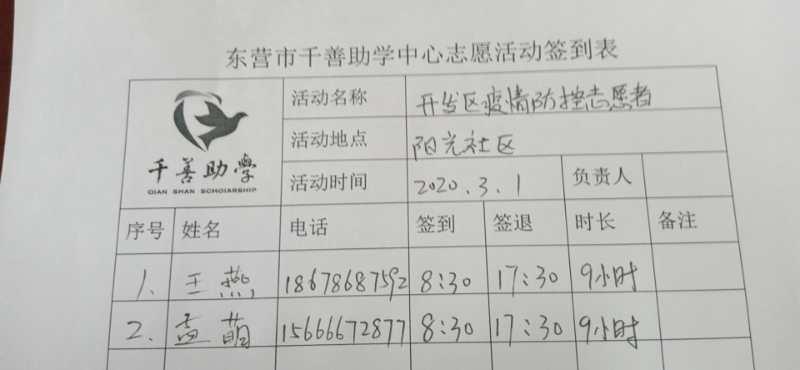 东营市千善助学中心志愿活动签到表
千善助學
QIAN SHAN SCHOLARSHIP
活动名称 开发区疫情防控志愿者
活动地点 阳光社区
活动时间 2020.3.1 负责人
序号 姓名 电话 签到 签退 时长 备注
1. 王燕 18678687592 8:30 17:30 9小时
2. 孟萌 15666672877 8:30 17:30 9小时